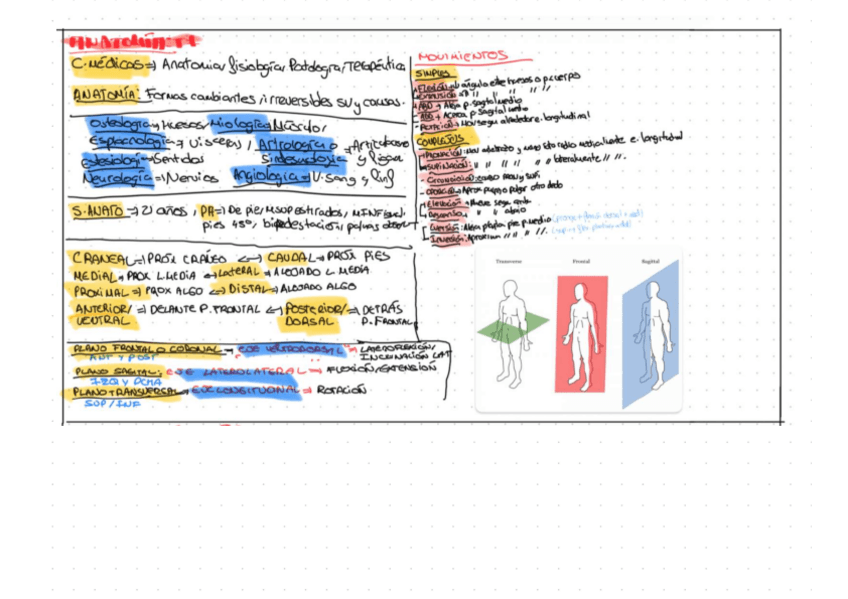 ANATOMÍA
C. MÉDICAS => Anatomía, fisiología, Patología, TERAPÉUTICA
ANATOMÍA: Formas cambiantes, irreversibles su y causas.
Osteología => Huesos, Miología => Músculo,
Esplacnología => Vísceras, Artrología o => Articulaciones
Estesiología => Sentidos Sindesmología y ligam
Neurología => Nervios Angiología => V. Sang y linf
S. ANATO => 21 años, PA => De pie, MSUP estirados, MINF
pies 45º, bipedestación, palmas
CRANEAL => PROX CRÁNEO <-> CAUDAL => PROX PIES
MEDIAL => PROX L MEDIA <-> LATERAL => ALEJADO L MEDIA
PROXIMAL => PROX ALGO <-> DISTAL => ALEJADO ALGO
ANTERIOR/ => DELANTE P. FRONTAL <-> POSTERIOR/ => DETRÁS
VENTRAL DORSAL P. FRONTAL
PLANO FRONTAL O CORONAL => EJE VENTRODORSAL => LATEROFLEXIÓN/
ANT Y POST INCLINACIÓN LAT
PLANO SAGITAL: EJE LATEROLATERAL => FLEXIÓN/EXTENSIÓN
IZQ Y DCHA
PLANO TRANSVERSAL => EJE LONGITUDINAL => ROTACIÓN
SUP / INF
MOVIMIENTOS
SIMPLES
- FLEXIÓN: ángulo entre huesos o p. cuerpo
- EXTENSIÓN: " " " " "
- ABD -> Aleja p. sagital medio
- ADD -> Acerca p. sagital medio
- ROTACIÓN -> Mov segu alrededor e. longitudinal
COMPLEJOS
- PRONACIÓN: radio medialmente e. longitudinal
- SUPINACIÓN: " " " " " lateralmente " ".
- Circunducción:
- OPOSICIÓN: Aprox pulgar otro dedo
- ELEVACIÓN: Mueve segu arriba
- Descenso: " " abajo
- EVERSIÓN: Aleja planta pie p. medio
- INVERSIÓN: Aproximan " " ".
Transverse Frontal Sagittal